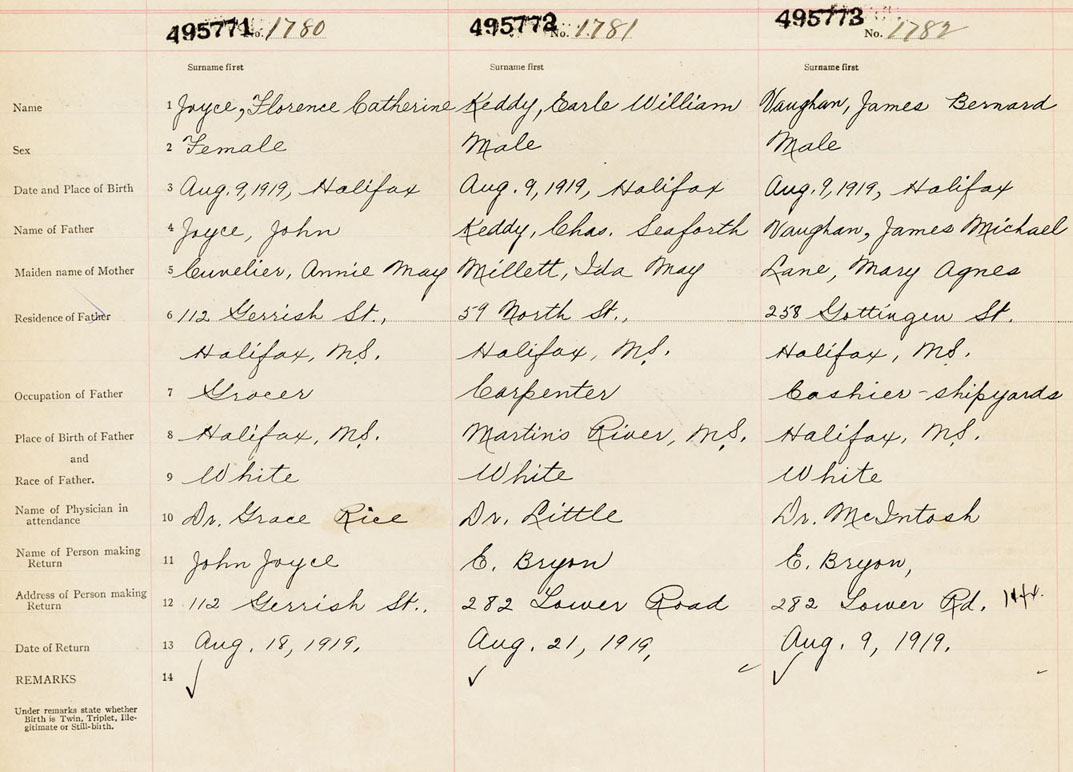 495771 No. 1780 495772 No. 1781 495773 No. 1782
Surname first Surname first Surname first
Name 1 Joyce, Florence Catherine Keddy, Earle William Vaughan, James Bernard
Sex 2 Female Male Male
Date and Place of Birth 3 Aug. 9, 1919, Halifax Aug. 9, 1919, Halifax Aug. 9, 1919, Halifax
Name of Father 4 Joyce, John Keddy, Chas. Seaforth Vaughan, James Michael
Maiden name of Mother 5 Cuvelier, Annie May Millett, Ida May Lane, Mary Agnes
Residence of Father 6 112 Gerrish St., 59 North St., 258 Gottingen St.
Halifax, N.S. Halifax, N.S. Halifax, N.S.
Occupation of Father 7 Grocer Carpenter Cashier - shipyards
Place of Birth of Father 8 Halifax, N.S. Martin's River, N.S. Halifax, N.S.
and
Race of Father. 9 White White White
Name of Physician in attendance 10 Dr. Grace Rice Dr. Little Dr. McIntosh
Name of Person making Return 11 John Joyce E. Bryon E. Bryon,
Address of Person making Return 12 112 Gerrish St.. 282 Lower Road 282 Lower Rd. Hfx.
Date of Return 13 Aug. 18, 1919. Aug. 21, 1919, Aug. 9, 1919.
REMARKS 14 ✓ ✓ ✓
Under remarks state whether
Birth is Twin, Triplet, Ille-
gitimate or Still-birth.